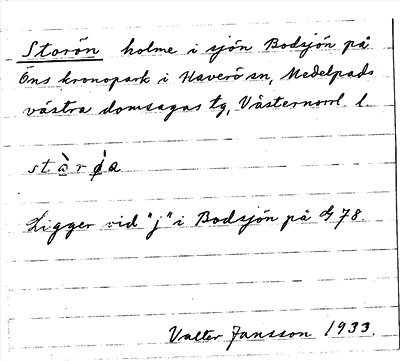 Storön holme i sjön Bodsjön på
Öns kronopark i Haverö sn, Medelpads
västra domsagas tg, Västernorrl. l.
Ligger vid "j" i Bodsjön på 78.
Valter Jansson 1933.